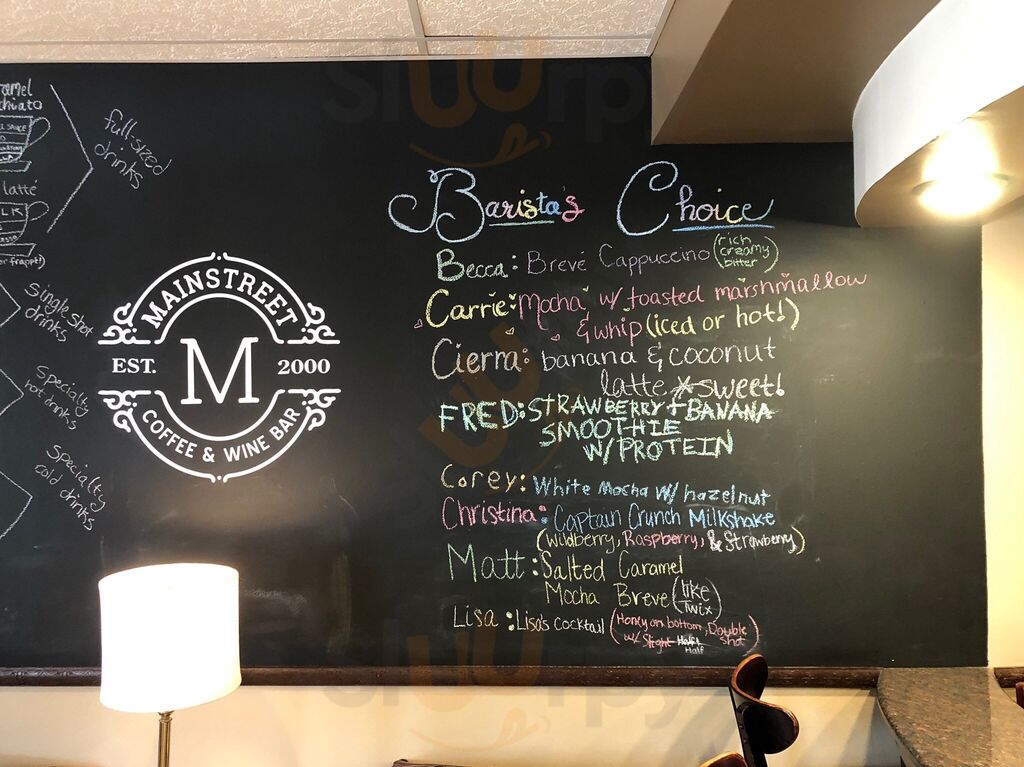 full-sized
drinks
latté
or frappé!)
Single shot
drinks
Specialty
hot drinks
Specialty
cold drinks
MAINSTREET
EST. M 2000
COFFEE & WINE BAR
Barista's Choice
Becca: Brevé Cappuccino (rich
creamy
bitter)
Carrie: Mocha w/ toasted marshmallow
& whip (iced or hot!)
Cierra: banana & coconut
latte *sweet!
FRED: STRAWBERRY + BANANA
SMOOTHIE
W/ PROTEIN
Corey: White Mocha w/ hazelnut
Christina: Captain Crunch Milkshake
(Wildberry, Raspberry, & Strawberry)
Matt: Salted Caramel
Mocha Breve (like
Twix)
Lisa: Lisa's Cocktail (Honey on bottom, Double
Shot
w/
Half
slurpy